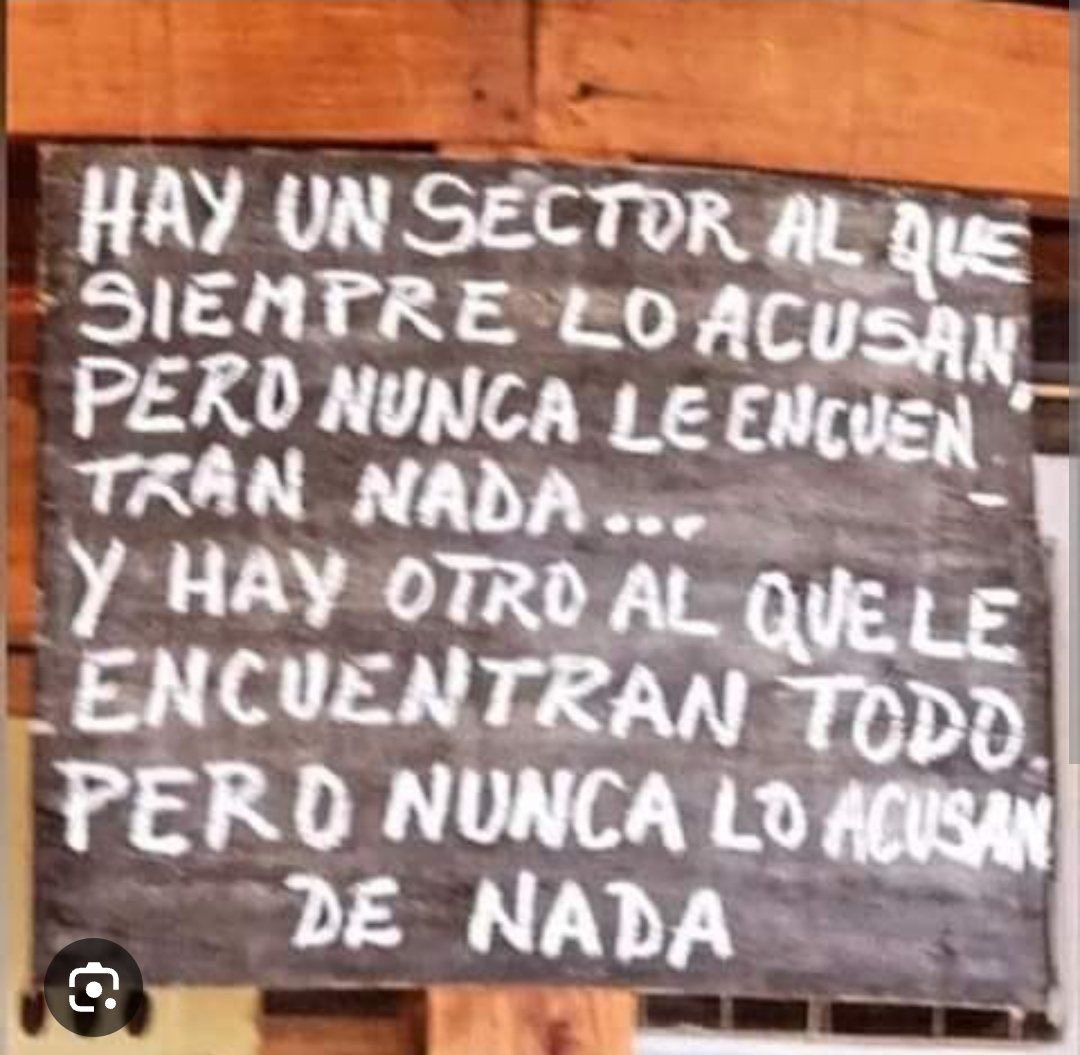 HAY UN SECTOR AL QUE
SIEMPRE LO ACUSAN,
PERO NUNCA LE ENCUEN-
TRAN NADA...
Y HAY OTRO AL QUE LE
ENCUENTRAN TODO.
PERO NUNCA LO ACUSAN
DE NADA